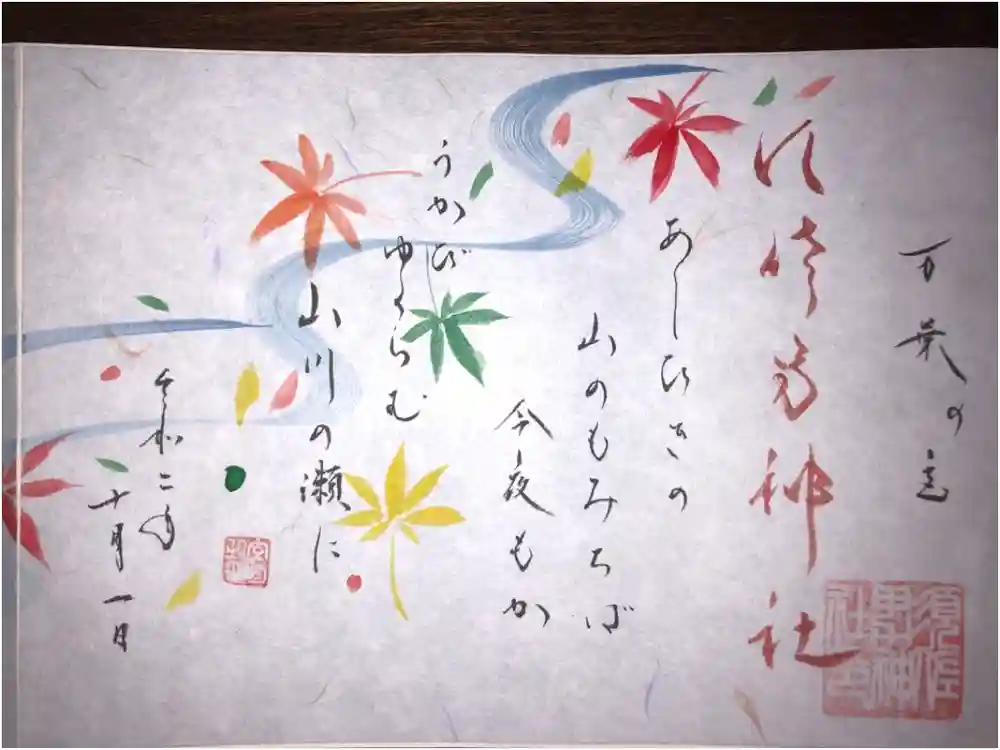 万葉の
須佐男神社
あしひきの
山のもみちば
今夜もか
うかび
ゆくらむ
山川の瀬に
令和二年
十月一日
須佐男神社印